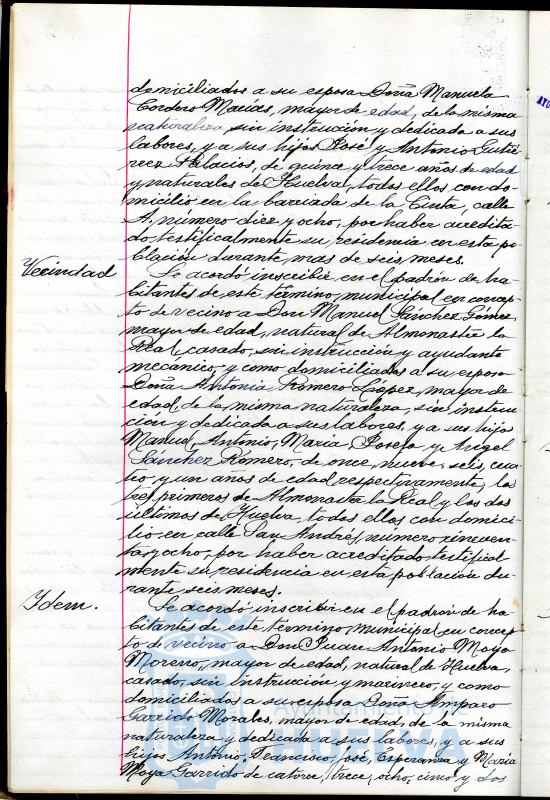 domiciliados a su esposa Doña Manuela
Cordero Macías, mayor de edad, de la misma
naturaleza, sin instrucción y dedicada a sus
labores, y a sus hijos José y Antonio Gutié-
rrez Palacios, de quince y trece años de edad
y naturales de Huelva, todos ellos con do-
micilio en la barriada de la Cinta, calle
A, número diez y ocho, por haber acredita-
do, testificalmente su residencia en esta po-
blación durante mas de seis meses.
Vecindad
Se acordó inscribir en el padrón de ha-
bitantes de este término, municipal en concep-
to de vecino a Don Manuel Sánchez Gómez,
mayor de edad, natural de Almonaster la
Real, casado, sin instrucción y ayudante
mecánico, y como domiciliados a su esposa
Doña Antonia Romero López, mayor de
edad, de la misma naturaleza, sin instruc-
ción y dedicada a sus labores, y a sus hijos
Manuel, Antonio, María, Josefa y Angel
Sánchez Romero, de once, nueve, seis, cua-
tro, y un años de edad respectivamente, los
tres primeros de Almonaster la Real y los dos
últimos de Huelva, todos ellos con domici-
lio en calle San Andrés, número cincuen-
ta y ocho, por haber acreditado testifical-
mente su residencia en esta población du-
rante seis meses.
Idem.
Se acordó inscribir en el padrón de ha-
bitantes de este termino, municipal en concep-
to de vecino a Don Juan Antonio Moya
Moreno, mayor de edad, natural de Huelva,
casado, sin instrucción y marinero, y como
domiciliados a su esposa Doña Amparo
Garrido Morales, mayor de edad, de la misma
naturaleza y dedicada a sus labores, y a sus
hijos Antonio, Francisco, José, Esperanza y María
Moya Garrido de catorce, trece, ocho, cinco y dos
Ayuntamiento de
HUELVA